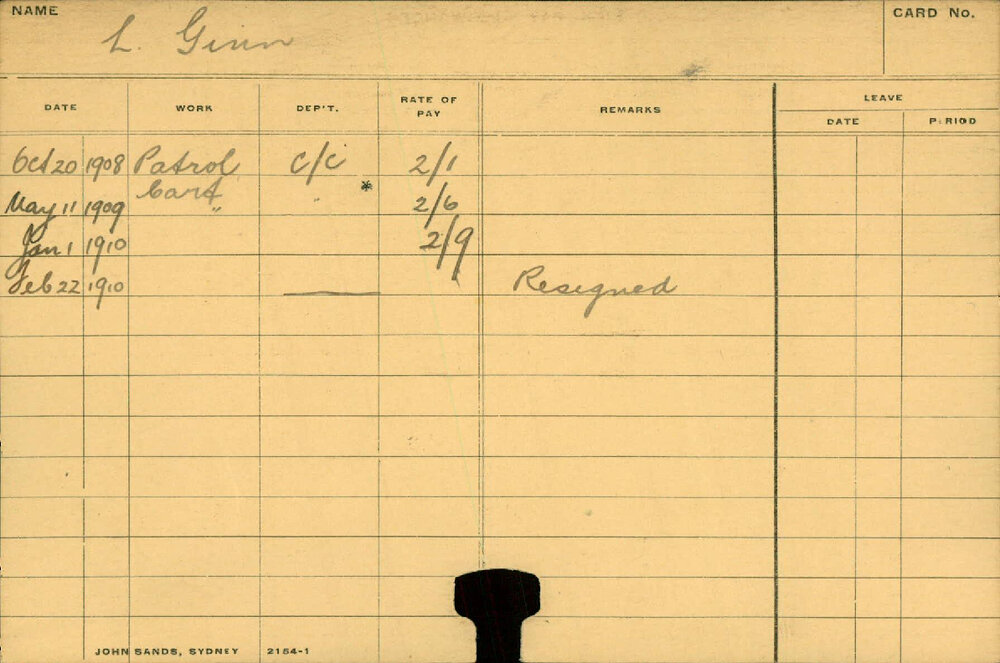 NAME
CARD No.
L. Ginn
DATE WORK DEP'T. RATE OF PAY REMARKS LEAVE
DATE PERIOD
Oct 20 1908 Patrol C/C 2/1
Cart *
May 11 1909 " " 2/6
Jan 1 1910 2/9
Feb 22 1910 Resigned
JOHN SANDS, SYDNEY 2154-1